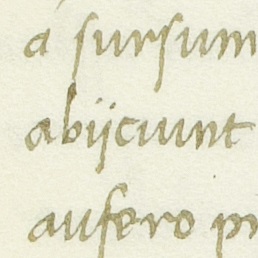 a sursum
abijciunt
aufero pr